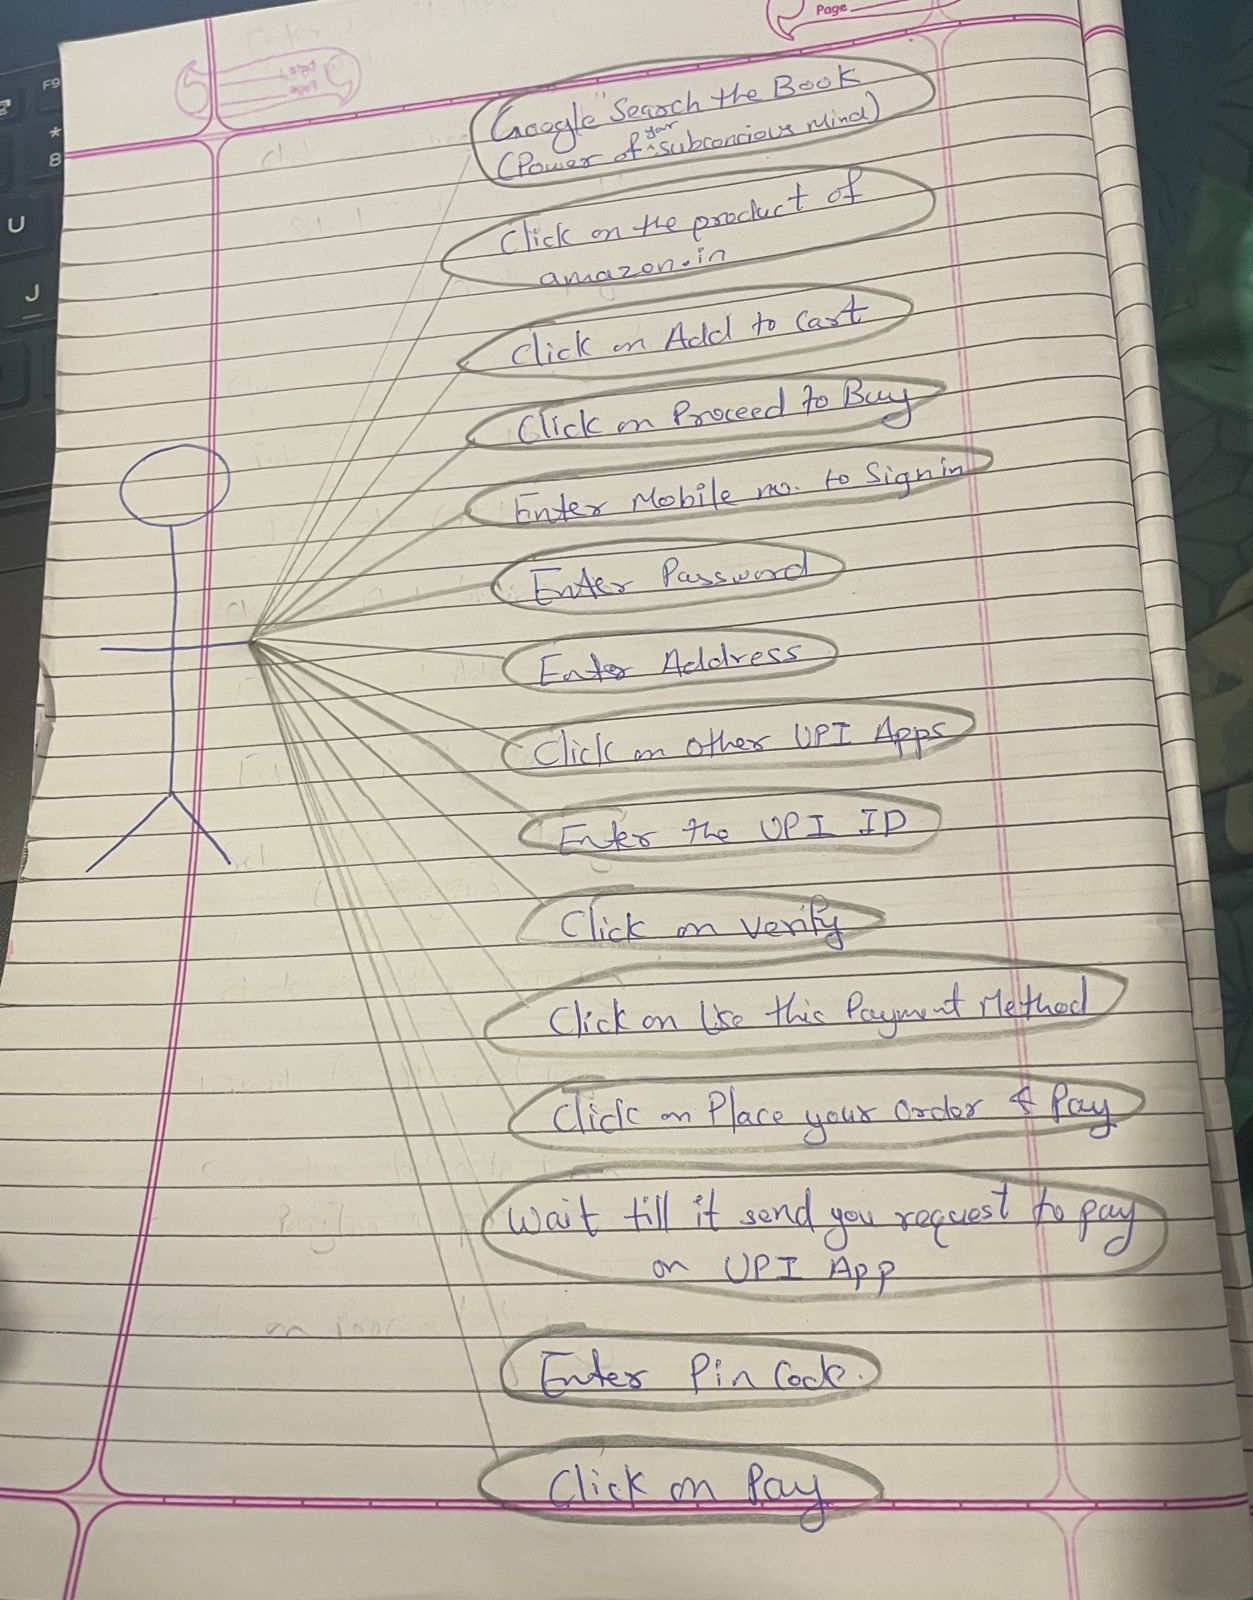 Page
F9
*
8
U
J
Google "Search the Book
(Power of your subconcious Mind)
Click on the product of
amazon.in
Click on Add to Cart
Click on Proceed to Buy
Enter Mobile no. to Sign in
Enter Password
Enter Address
Click on other UPI Apps
Enter the UPI ID
Click on Verify
Click on Use this Payment Method
Click on Place your Order & Pay
Wait till it send you request to pay
on UPI App
Enter Pin Code.
Click on Pay